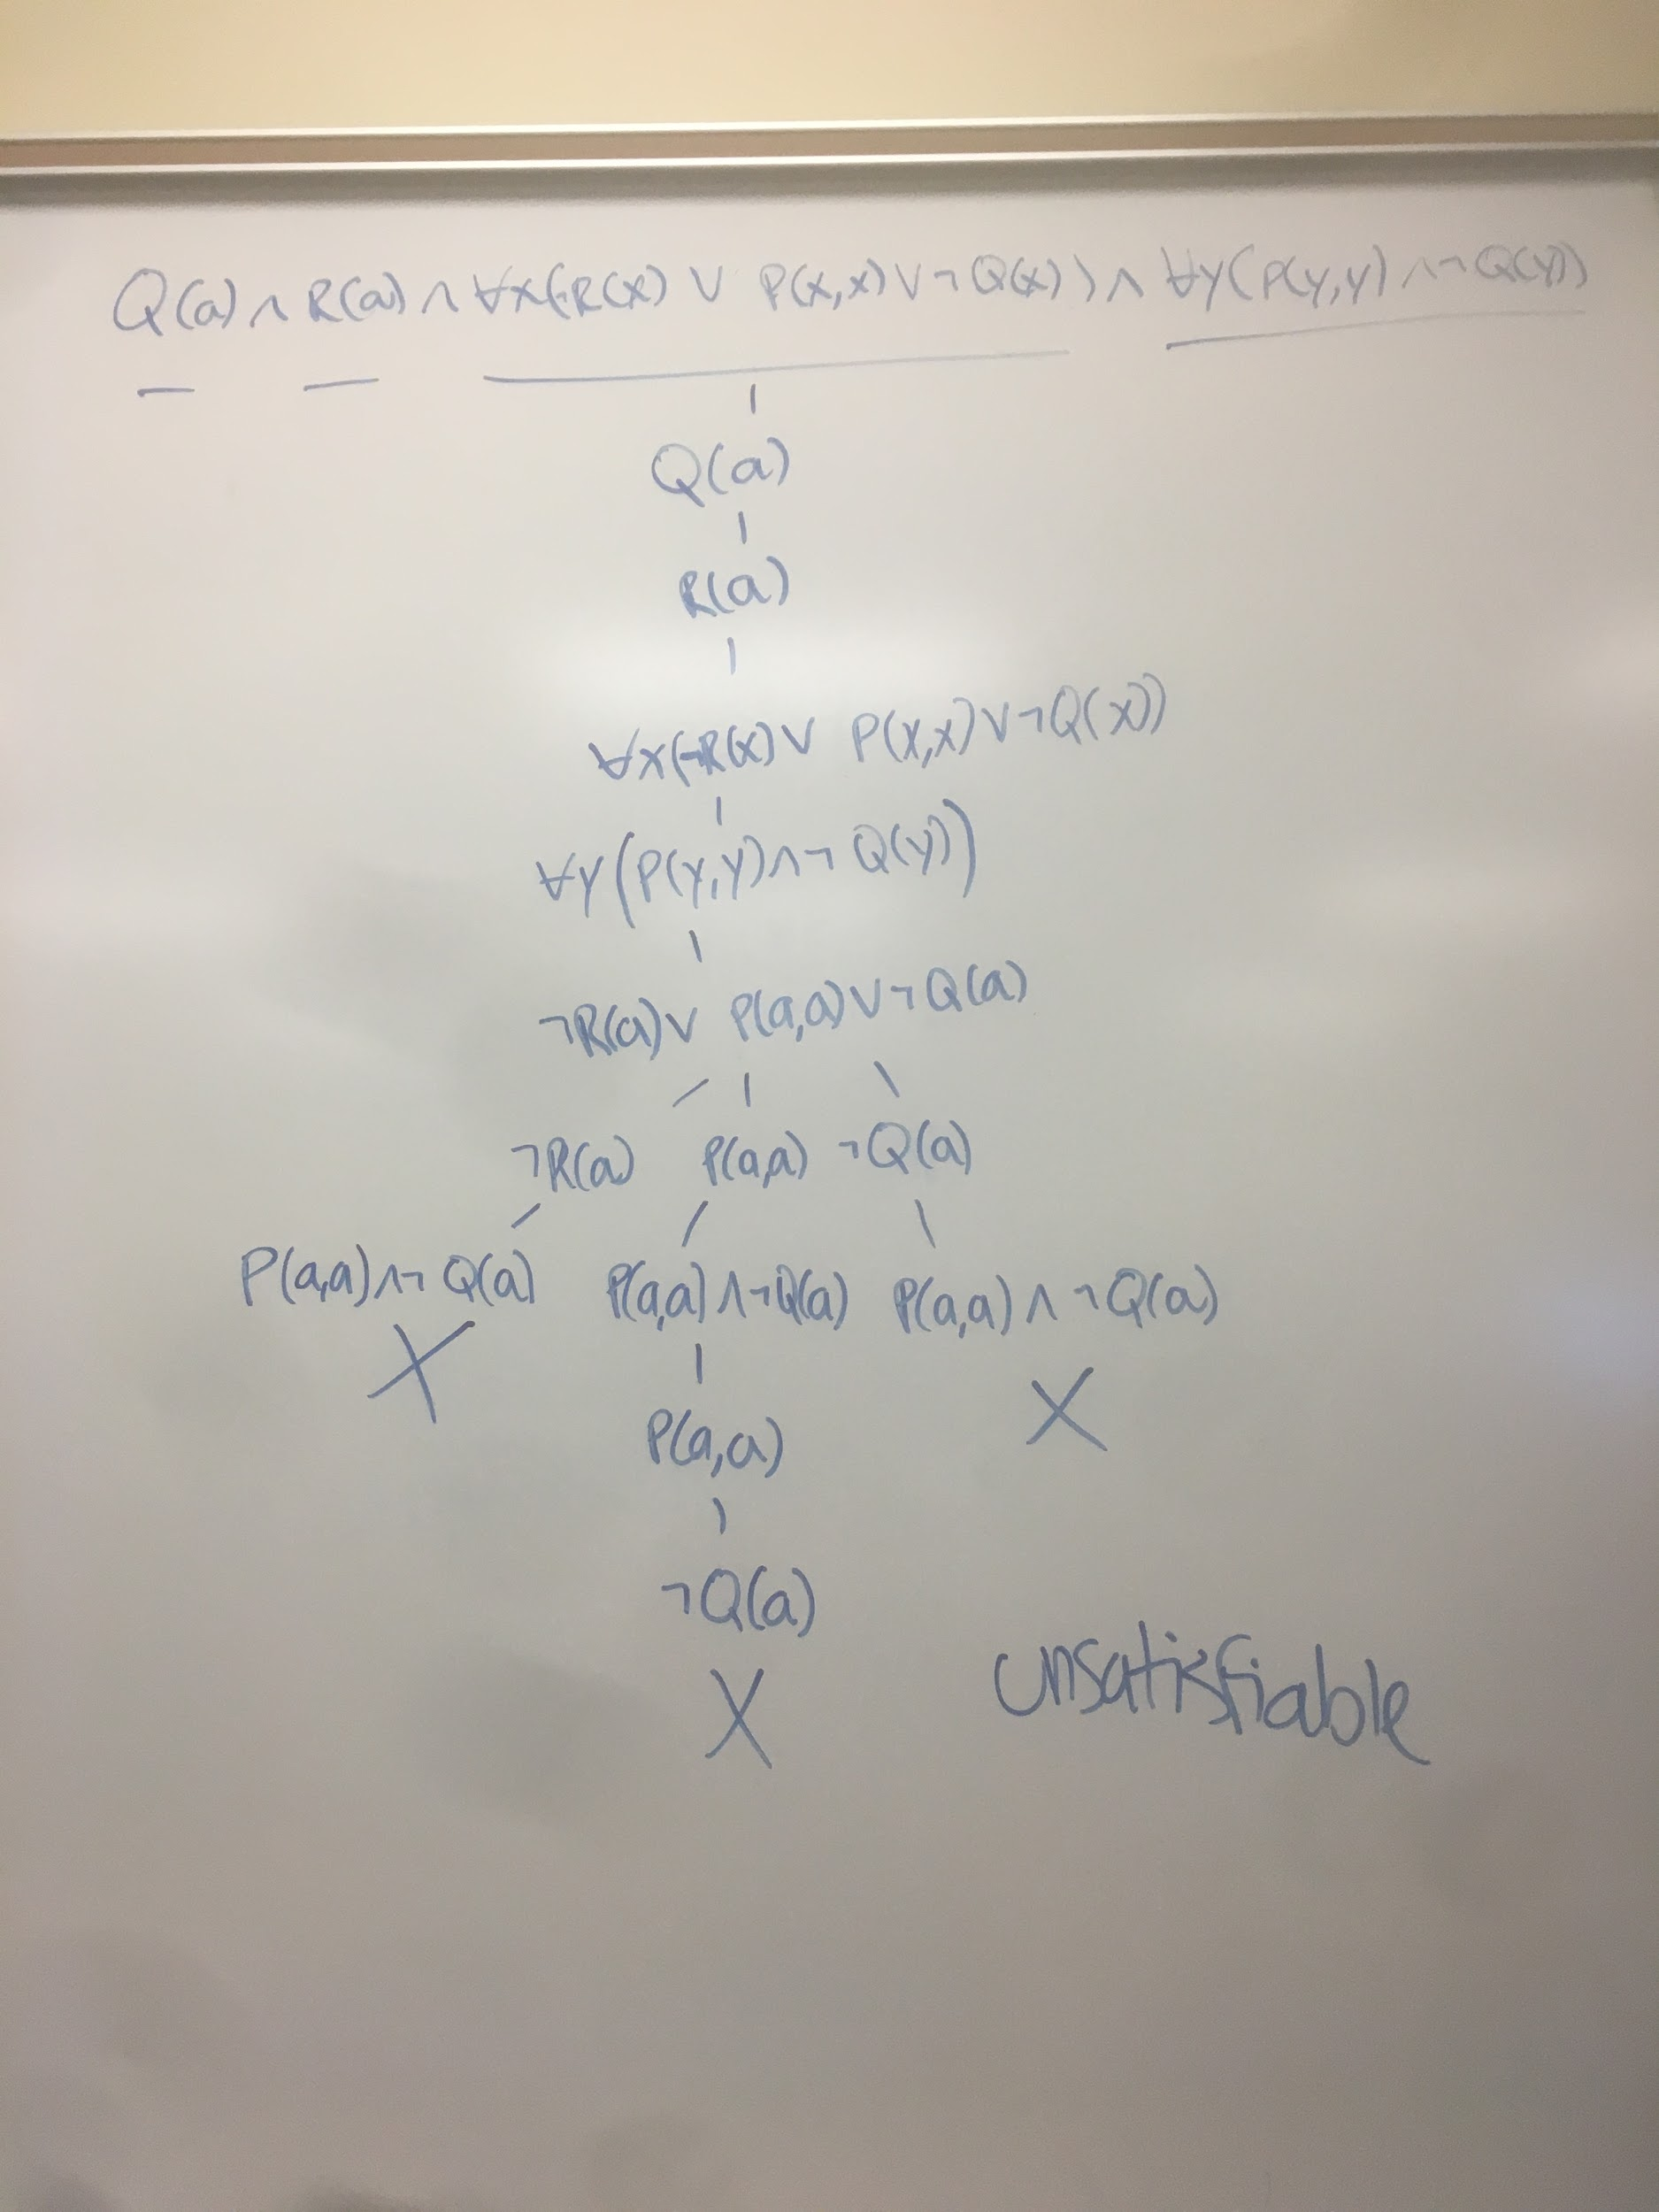 Q(a) ∧ R(a) ∧ ∀x(¬R(x) ∨ P(x,x) ∨ ¬Q(x)) ∧ ∀y(P(y,y) ∧ ¬Q(y))
Q(a)
R(a)
∀x(¬R(x) ∨ P(x,x) ∨ ¬Q(x))
∀y(P(y,y) ∧ ¬Q(y))
¬R(a) ∨ P(a,a) ∨ ¬Q(a)
¬R(a) P(a,a) ¬Q(a)
P(a,a) ∧ ¬Q(a) P(a,a) ∧ ¬Q(a) P(a,a) ∧ ¬Q(a)
X X
P(a,a)
¬Q(a)
X
unsatisfiable